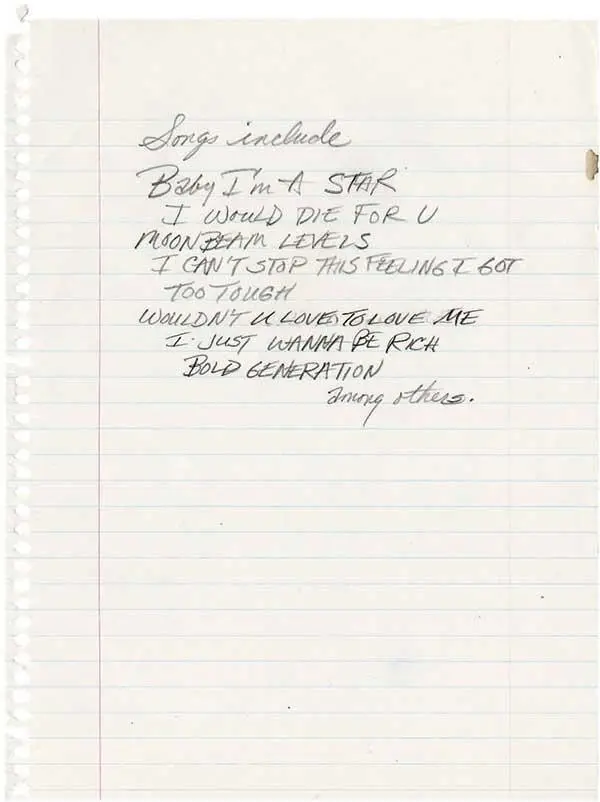 Songs include
Baby I'm A STAR
I WOULD DIE FOR U
MOONBEAM LEVELS
I CAN'T STOP THIS FEELING I GOT
TOO TOUGH
WOULDN'T U LOVE TO LOVE ME
I JUST WANNA BE RICH
BOLD GENERATION
among others.